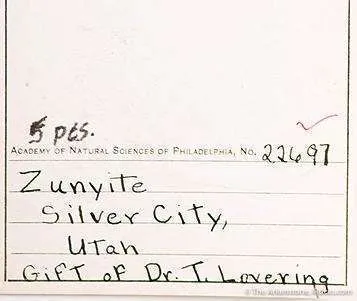 5 pcs.
ACADEMY OF NATURAL SCIENCES OF PHILADELPHIA, NO. 22697
Zunyite
Silver City,
Utah
Gift of Dr. T. Lovering
© The Arkenstone, iRocks.com